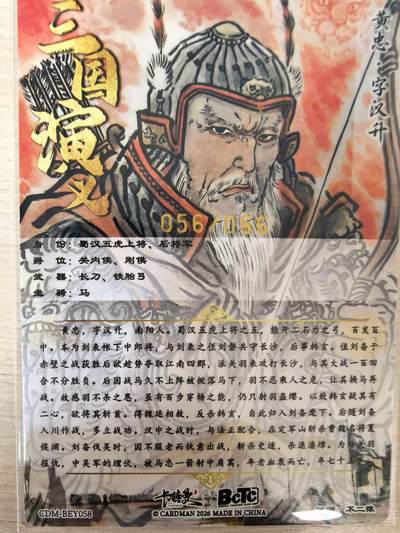 三国演义
黄忠，字汉升
056/066
身 份：蜀汉五虎上将、后将军
爵 位：关内侯、刚侯
武 器：长刀、铁胎弓
坐 骑：马
黄忠，字汉升，南阳人。蜀汉五虎上将之五，能开二石力之弓，百发百
中。本为刘表帐下中郎将，与刘表之侄刘磐共守长沙，后事韩玄。值刘备于
赤壁之战获胜后欲趁势夺取江南四郡，派关羽来攻打长沙，与其大战一百回
合不分胜负。后因战马久不上阵被掀落马下，羽不忍乘人之危，让其换马再
战。故感羽不杀之恩，虽有百步穿杨之能，仍只射羽盔缨。以致韩玄疑其有
二心，欲将其斩首。得魏延相救，反杀韩玄，自此归入刘备麾下。后随刘备
入川作战，多立战功。汉中之战时，与法正配合，在定军山斩杀曹魏名将夏
侯渊。刘备伐吴时，因不服老而执意出战，斩杀史迹，杀退潘璋。为给关羽
报仇，中吴军的埋伏，被马忠一箭射中肩窝，年老血衰而亡，年七十
卡牌曼 BCTC
CDM-BEY058
© CARDMAN 2026 MADE IN CHINA